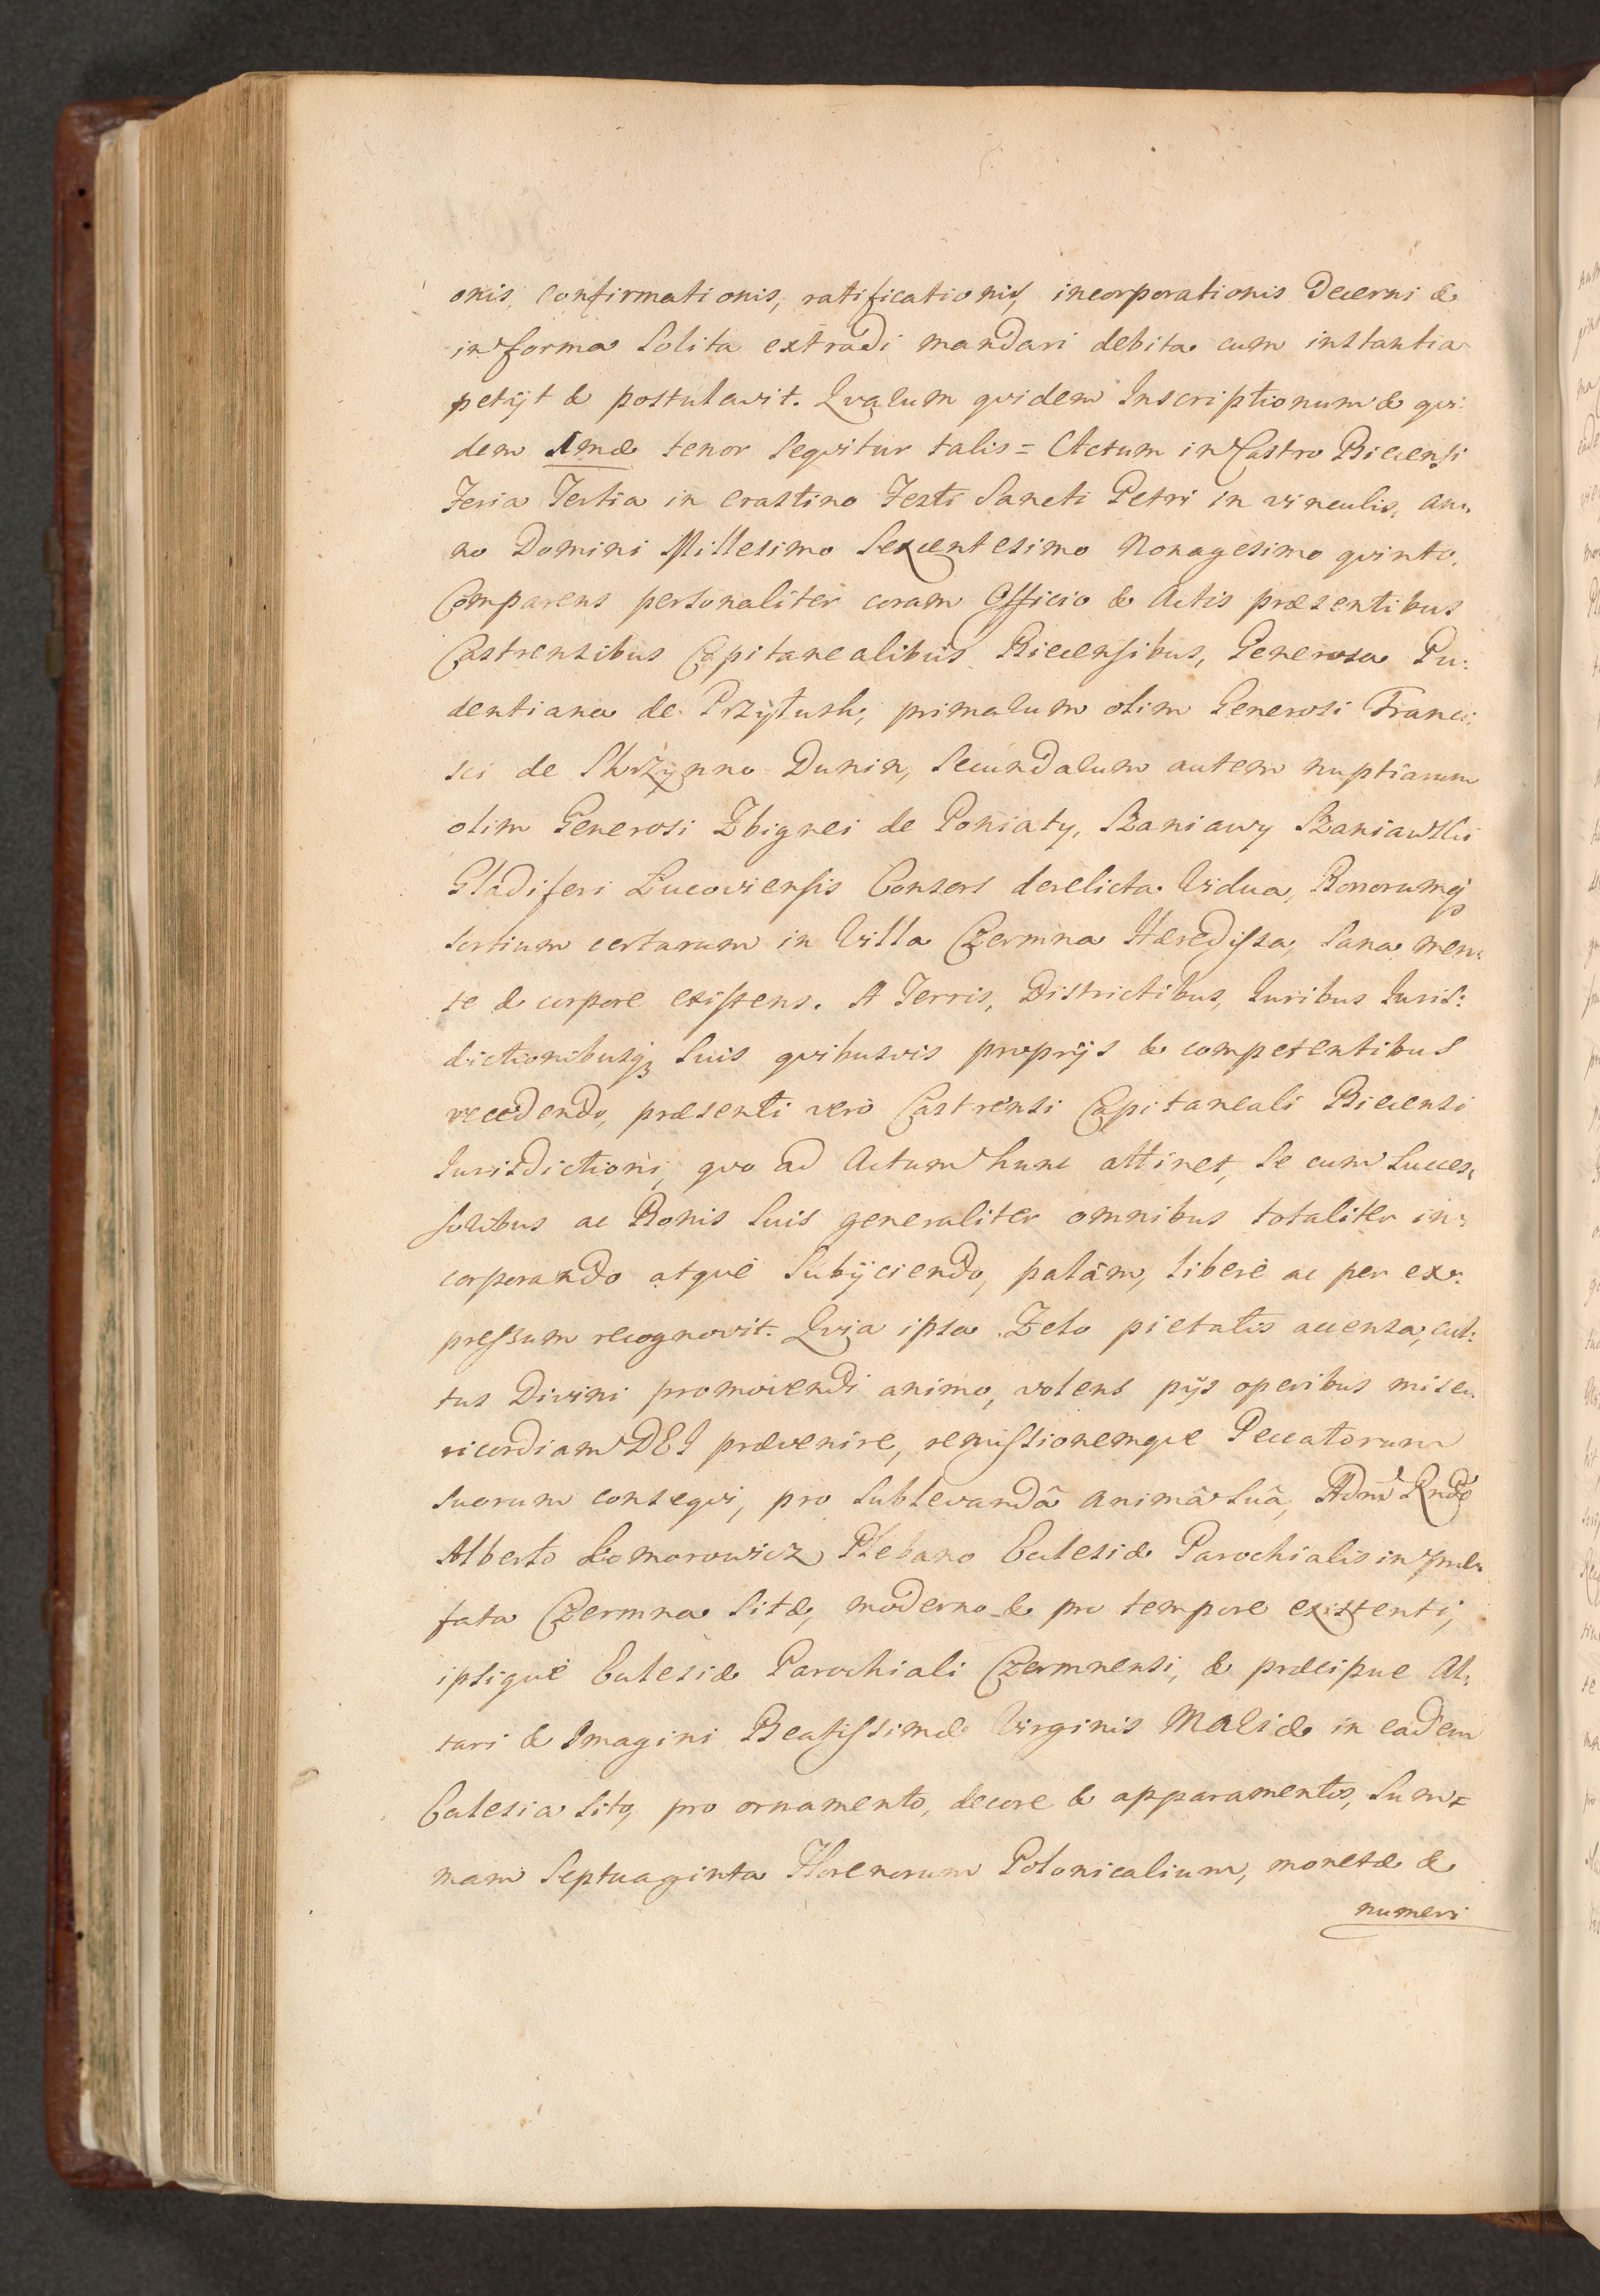 onis, confirmationis, ratificationis, incorporationis Decerni &
in forma Solita extradi mandari debita cum instantia
petijt & postulavit. Qvarum qvidem Inscriptionum & qvi:
dem 1mæ tenor seqvitur talis = Actum in Castro Biecensi
Feria Tertia in crastino Festi Sancti Petri in vinculis, an:
no Domini Millesimo Sexcentesimo Nonagesimo qvinto.
Comparens personaliter coram Officio & Actis præsentibus
Castrensibus Capitanealibus Biecensibus, Generosa Pu:
dentiana de Przytusk, primarum olim Generosi Franci:
sci de Skrzynno Dunin, Secundarum autem nuptiarum
olim Generosi Zbignei de Poniaty, Szaniawy Szaniawski
Gladiferi Lucoviensis Consors derelicta Vidua, Bonorumq̃
sortium certarum in Villa Czermna Hæredissa, Sana men:
te & corpore existens. A Terris, Districtibus, Iuribus Iuris:
dictionibusq̃ Suis qvibusvis proprijs & competentibus
recedendo, præsenti verò Castrensi Capitaneali Biecensi
Iurisdictioni, qvo ad Actum hunc attinet, Se cum Succes:
soribus ac Bonis Suis generaliter omnibus totaliter in:
corporando atqvè Subijciendo, palàm, liberè ac per ex:
pressum recognovit. Qvia ipsa Zelo pietatis accensa, cul:
tus Divini promovendi animo, volens pijs operibus mise:
ricordiam DEI prævenire, remissionemqve Peccatorum
suorum conseqvi, pro Sublevandâ animâ Suâ, Admd Rndo
Alberto Komorowicz Plebano Ecclesiæ Parochialis in præ:
fata Czermna Sitæ, moderno & pro tempore existenti,
ipsiqvè Ecclesiæ Parochiali Czermnensi, & præcipue Al:
tari & Imagini Beatissimæ Virginis MARIÆ in eadem
Ecclesia Sito, pro ornamento, decore & apparamentis, Sum:
mam Septuaginta Florenorum Polonicalium, monetæ &
numeri